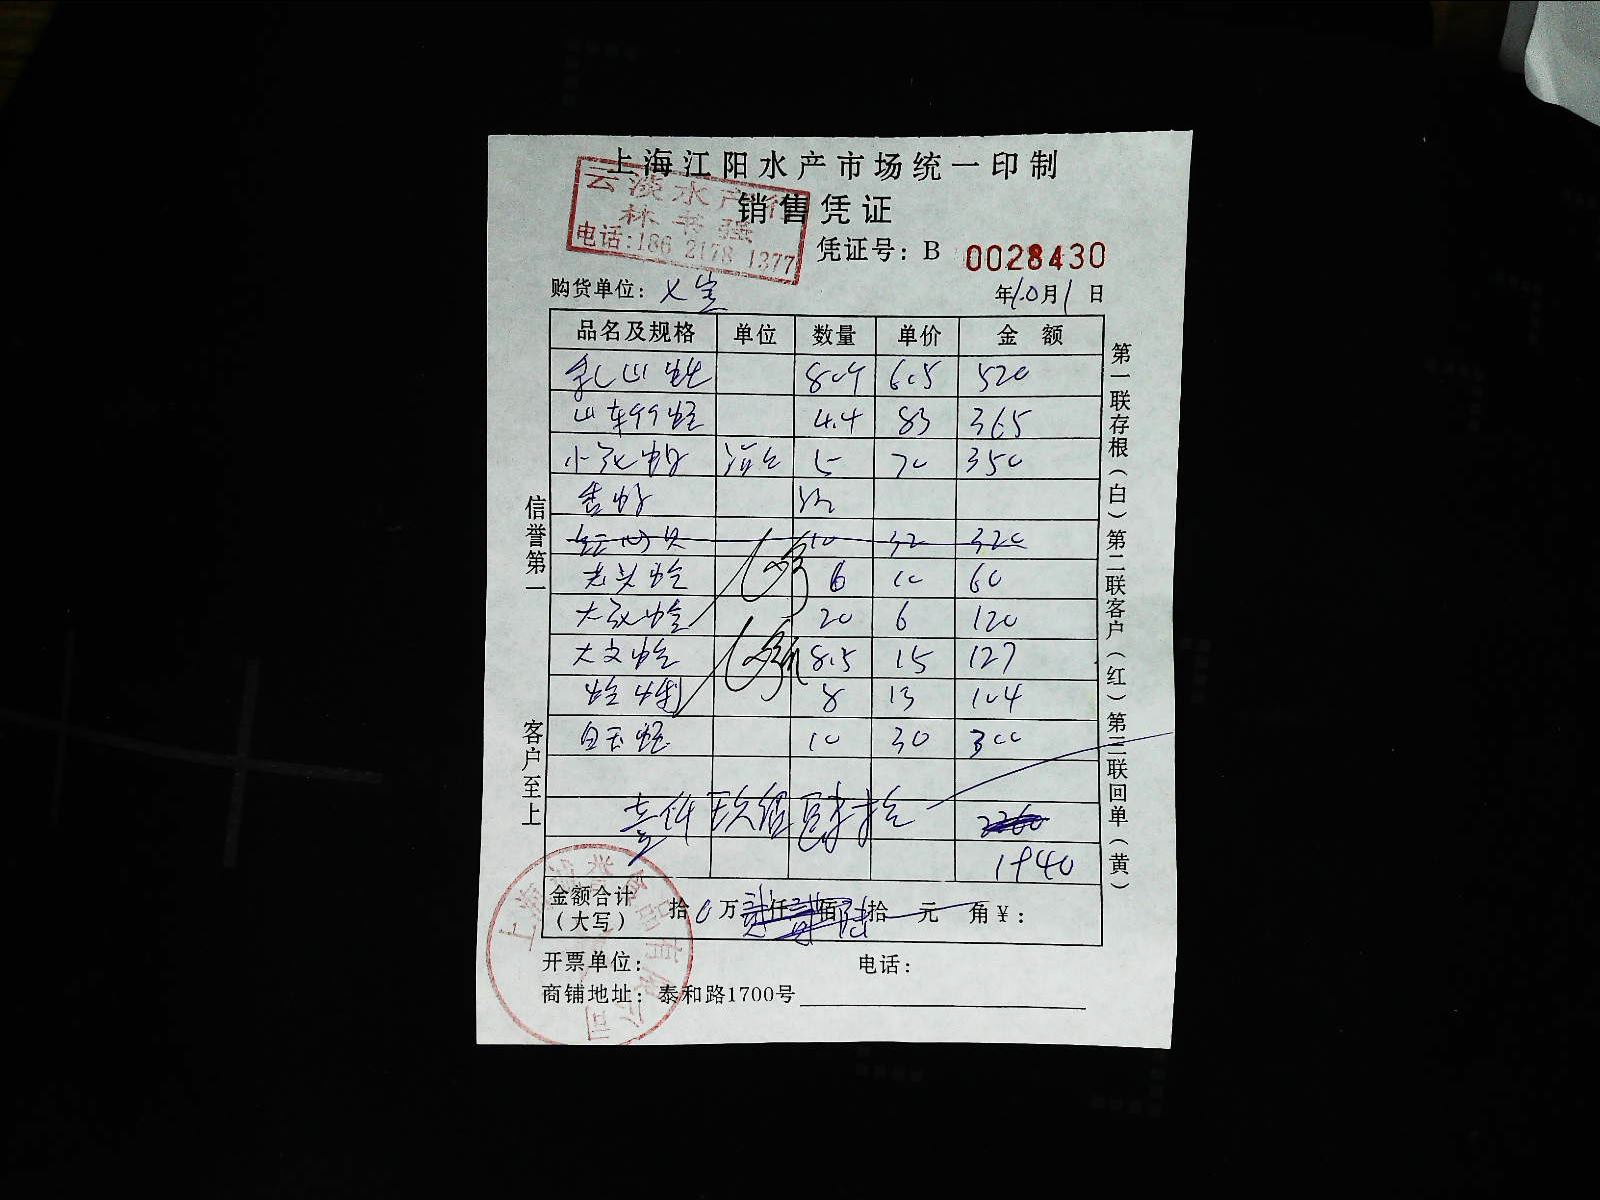 上海江阳水产市场统一印制
云淡水产行
林书强
电话:186 2178 1377
销售凭证
凭证号: B 0028430
购货单位:
年10月1日
品名及规格 单位 数量 单价 金额
乳山蚝 80只 6.5 520
4.4 83 365
5 70 350
10 32 320
老头蛤 6 10 60
大花蛤 20 6 120
大文蛤 8.5 15 127
8 13 104
白玉蛏 10 30 300
壹仟玖佰肆拾
2260
1940
金额合计
(大写) 拾0万贰仟贰佰陆拾 元 角¥:
开票单位: 电话:
商铺地址: 泰和路1700号
信誉第一
客户至上
第一联存根(白)第二联客户(红)第三联回单(黄)
上海诚誉食品有限公司